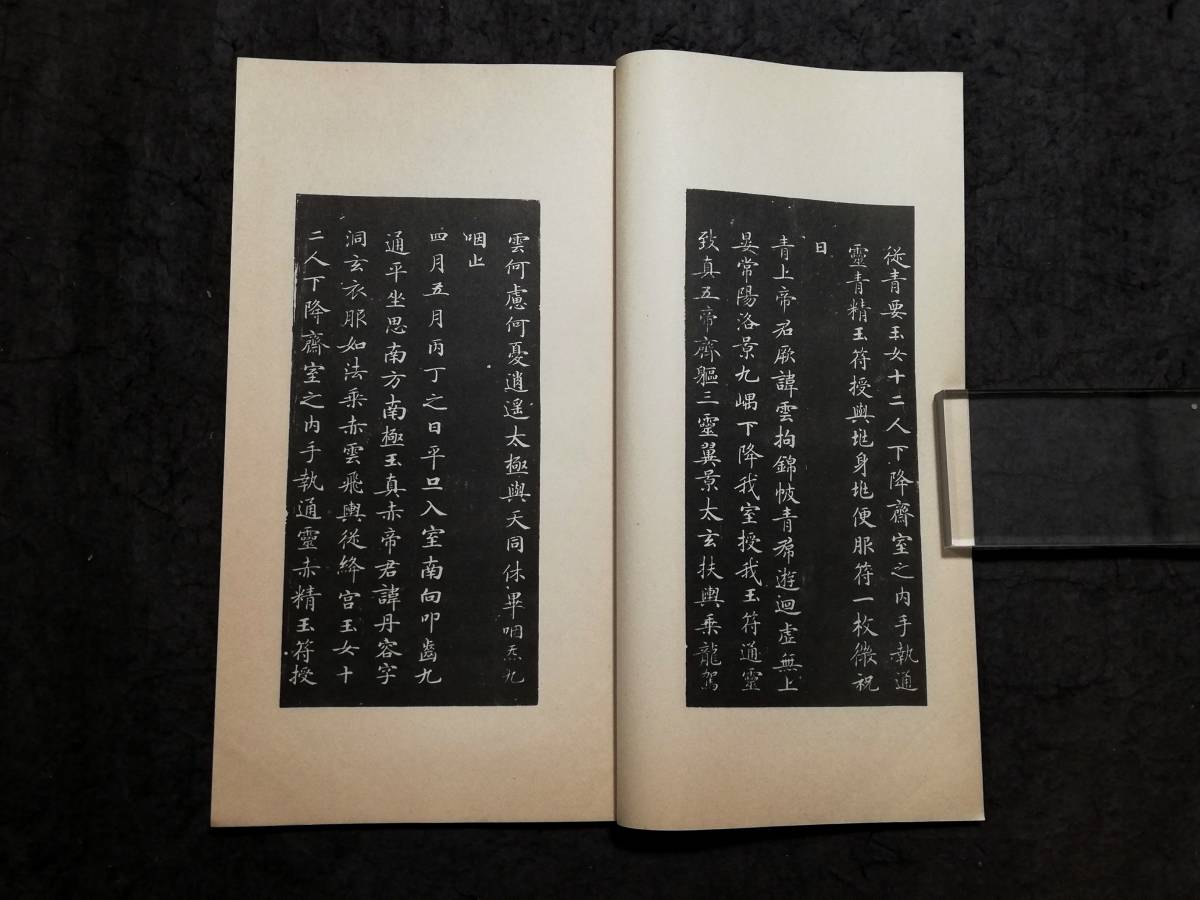 從青要玉女十二人下降齋室之内手執通
靈青精玉符授與兆身兆便服符一枚微祝
曰
青上帝君厥諱雲拘錦帔青帬遊迴虛無上
晏常陽洛景九嵎下降我室授我玉符通靈
致真五帝齊軀三靈翼景太玄扶輿乘龍駕
雲何慮何憂逍遥太極與天同休畢咽炁九
咽止
四月五月丙丁之日平旦入室南向叩齒九
通平坐思南方南極玉真赤帝君諱丹容字
洞玄衣服如法乘赤雲飛輿從絳宫玉女十
二人下降齋室之内手執通靈赤精玉符授